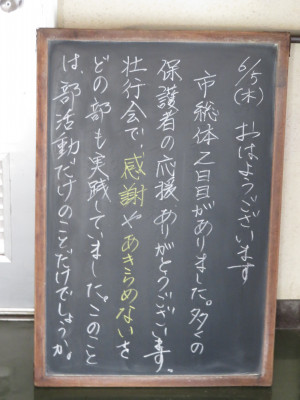 6/5(木) おはようございます
市総体2日目がありました。多くの
保護者の応援ありがとうございます。
壮行会で、感謝やあきらめないを
どの部も実践していました。このこと
は、部活動だけのことだけでしょうか。